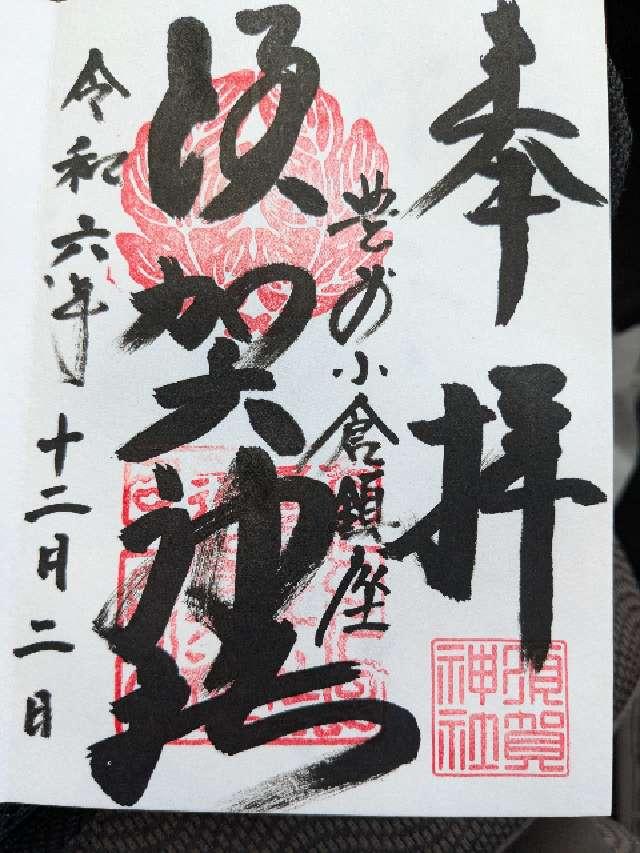 奉拝
豊前小倉鎮座
須賀神社
令和六年十二月二日
須賀神社